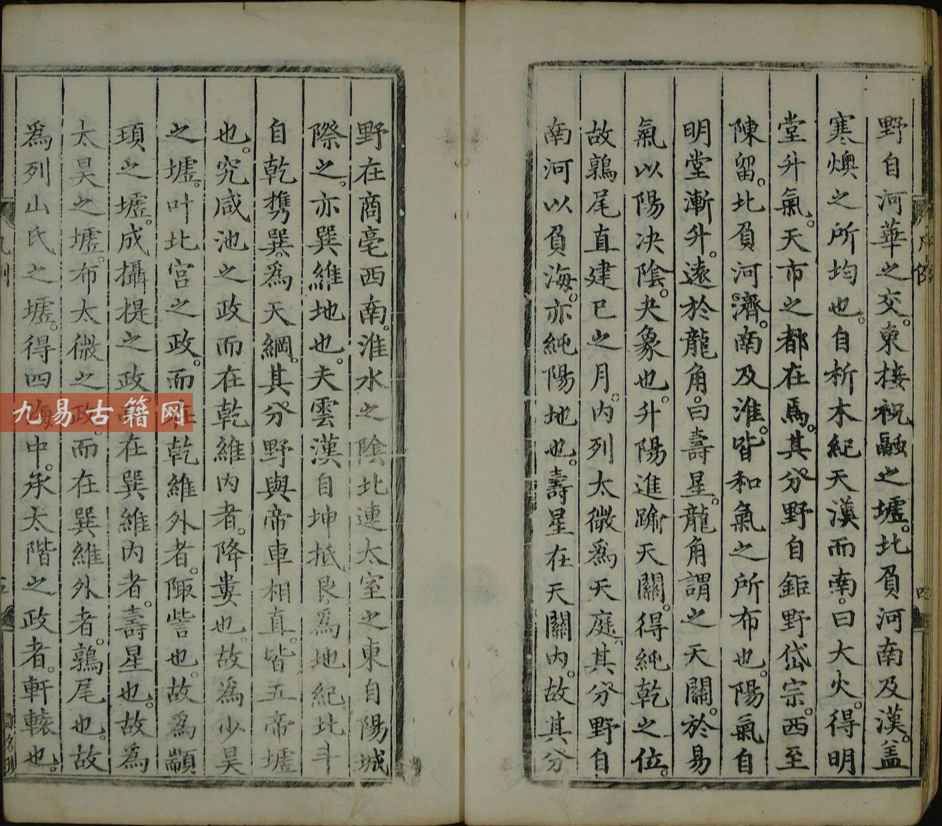 野自河華之交東接祝融之墟。北負河南及漢。盖
寒燠之所均也。自析木紀天漢而南。曰大火。得明
堂升氣。天市之都在焉。其分野自鉅野岱宗。西至
陳留。北負河濟。南及淮。皆和氣之所布也。陽氣自
明堂漸升。遠於龍角。曰壽星。龍角謂之天關。於易
氣以陽决陰。夬象也。升陽進踰天關。得純乾之位。
故鶉尾直建巳之月。内列太微爲天庭。其分野自
南河以負海。亦純陽地也。壽星在天關内。故其分
野在商亳西南。淮水之陰北連太室之東自陽城
際之。亦巽維地也。夫雲漢自坤抵艮爲地紀北斗
自乾㩗巽爲天綱。其分野與帝車相直。皆五帝墟
也。究咸池之政而在乾維内者。降婁也。故爲少昊
之墟。叶北宫之政。而在乾維外者。陬訾也。故爲顓
頊之墟。成攝提之政而在巽維内者。壽星也。故爲
太昊之墟。布太微之政。而在巽維外者。鶉尾也。故
爲列山氏之墟。得四海中。承太階之政者。軒轅也。
九易古籍网